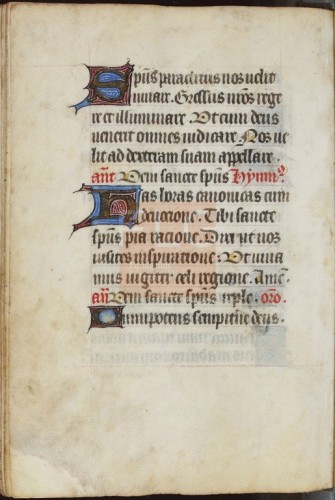 Spūs paraclitus nos velit
iuuare. Gressus nr̄os rege
re et illuminare. Vt cum deus
uenerit omnes iudicare. Nos ue
lit ad dexteram suam appellare.
an̄t Veni sancte spūs Hymn⁹.
Has horas canonicas cum
deuocione. Tibi sancte
spūs pia racione. Dixi ut nos
uisites inspiracione. Vt viua
mus iugiter celi regione. Amē.
an̄ Veni sancte spūs reple. oro.
Omnipotens sempiterne deus.